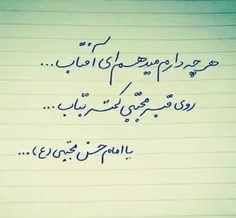 هر چه دارم میدهم ای آفتاب...
روی قبر مجتبی کمتر بتاب...
یا امام حسن مجتبی (ع)...